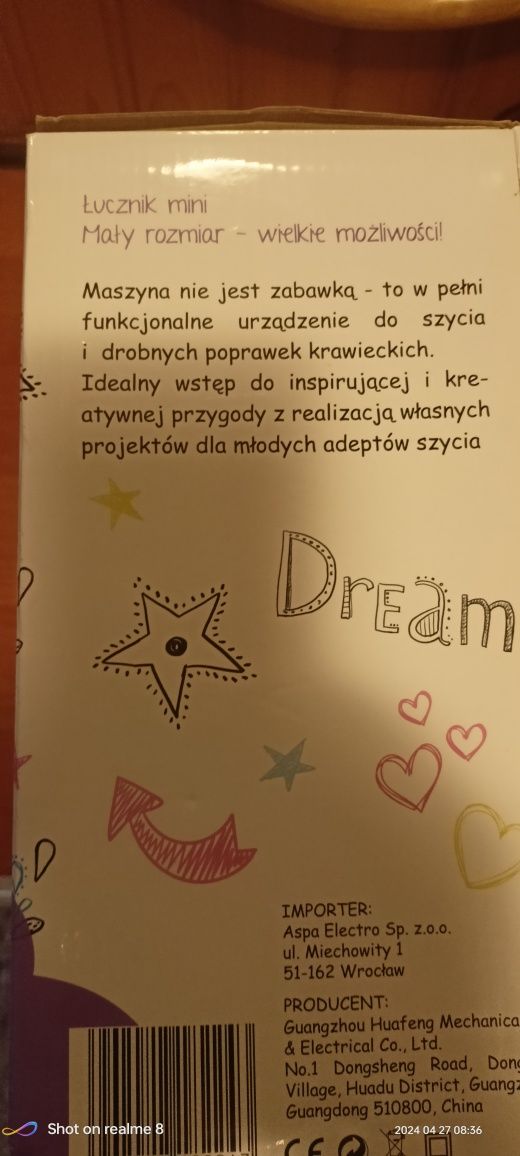 Łucznik mini
Mały rozmiar - wielkie możliwości!
Maszyna nie jest zabawką - to w pełni
funkcjonalne urządzenie do szycia
i drobnych poprawek krawieckich.
Idealny wstęp do inspirującej i kre-
atywnej przygody z realizacją własnych
projektów dla młodych adeptów szycia
Dream
IMPORTER:
Aspa Electro Sp. z.o.o.
ul. Miechowity 1
51-162 Wrocław
PRODUCENT:
Guangzhou Huafeng Mechanica
& Electrical Co., Ltd.
No.1 Dongsheng Road, Dong
Village, Huadu District, Guangz
Guangdong 510800, China
CE
Shot on realme 8
2024 04 27 08:36